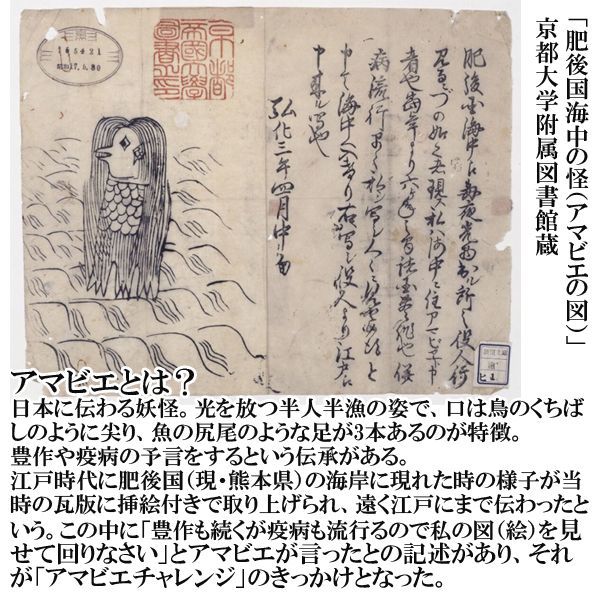 「肥後国海中の怪(アマビエの図)」
京都大学附属図書館蔵
肥後国海中え毎夜光物出ル所之役人行
見るニづの如く者現ス私ハ海中ニ住アマビヱト申
者也当年より六ヶ年之間諸国豊作也併
病流行早々私ヲ写シ人々ニ見セ候得と
申て海中へ入けり右写シ役人より江戸え
申来ル写也
弘化三年四月中旬
京都
帝國大學
圖書之印
165421
アマビエとは?
日本に伝わる妖怪。光を放つ半人半漁の姿で、口は鳥のくちば
しのように尖り、魚の尻尾のような足が3本あるのが特徴。
豊作や疫病の予言をするという伝承がある。
江戸時代に肥後国(現・熊本県)の海岸に現れた時の様子が当
時の瓦版に挿絵付きで取り上げられ、遠く江戸にまで伝わったと
いう。この中に「豊作も続くが疫病も流行るので私の図(絵)を見
せて回りなさい」とアマビエが言ったとの記述があり、それ
が「アマビエチャレンジ」のきっかけとなった。